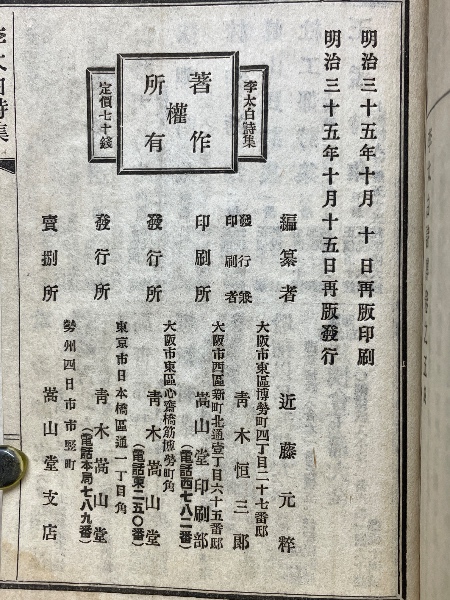 明治三十五年十月十日再版印刷
明治三十五年十月十五日再版發行
李太白詩集
著作
權
所有
定價七十錢
編纂者 近藤元粹
大阪市東區博勞町四丁目二十七番邸
發行兼印刷者 青木恒三郎
大阪市西區新町北通壹丁目六十五番邸
印刷所 嵩山堂印刷部
(電話西七八二番)
大阪市東區心齋橋筋博勞町角
發行所 青木嵩山堂
(電話東二五〇番)
東京市日本橋區通一丁目角
發行所 青木嵩山堂
(電話本局七八九番)
勢州四日市市竪町
賣捌所 嵩山堂支店
李太白詩集